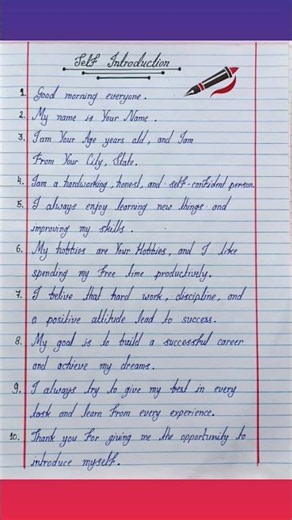 Self Introduction
1. Good morning everyone.
2. My name is Your Name.
3. I am Your Age years old, and I am
From Your City, State.
4. I am a hardworking, honest, and self-confident person.
5. I always enjoy learning new things and
improving my skills.
6. My hobbies are Your Hobbies, and I like
spending my free time productively.
7. I belive that hard work, discipline, and
a positive attitude lead to success.
8. My goal is to build a successful career
and achieve my dreams.
9. I always try to give my best in every
task and learn from every experience.
10. Thank you for giving me the opportunity to
introduce myself.